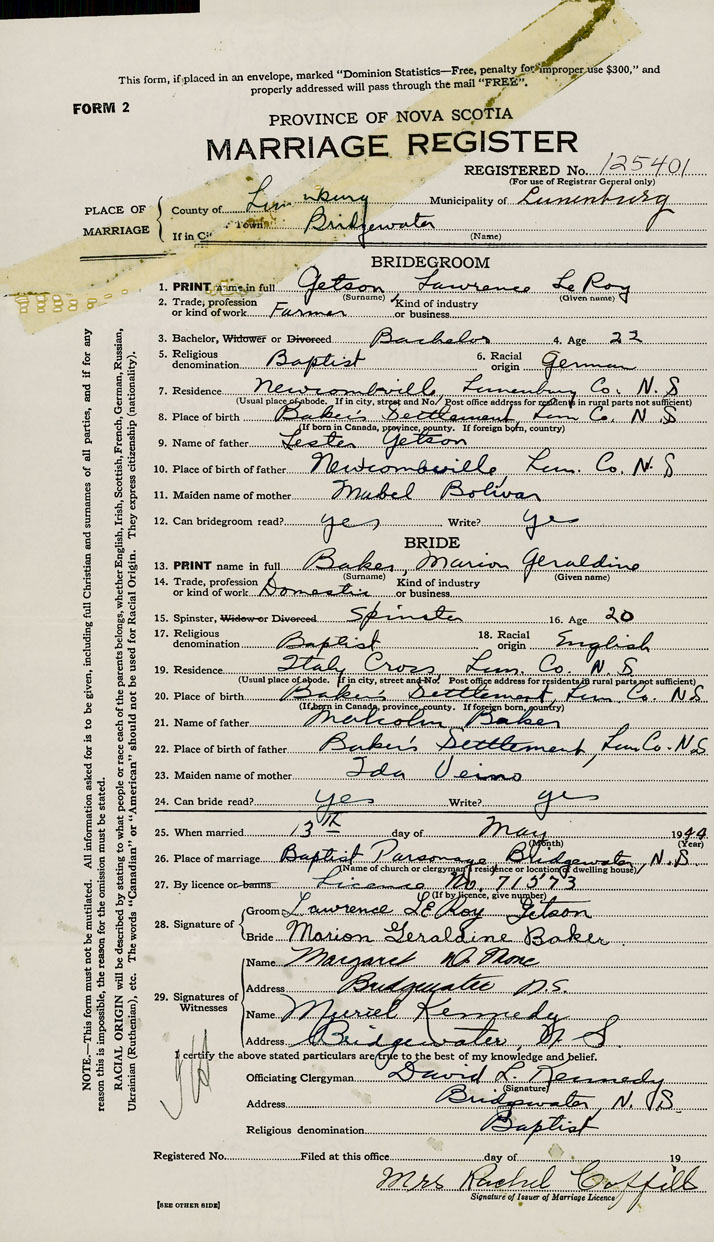 This form, if placed in an envelope, marked "Dominion Statistics—Free, penalty for improper use $300," and
properly addressed will pass through the mail "FREE".
FORM 2
PROVINCE OF NOVA SCOTIA
MARRIAGE REGISTER
REGISTERED No. 125401
(For use of Registrar General only)
PLACE OF MARRIAGE
County of Municipality of Lunenburg
If in Town Bridgewater
(Name)
BRIDEGROOM
1. PRINT name in full Getson Lawrence LeRoy
(Surname) (Given name)
2. Trade, profession or kind of work Farmer Kind of industry or business
3. Bachelor, Widower or Divorced Bachelor 4. Age 22
5. Religious denomination Baptist 6. Racial origin German
7. Residence Newcombville, Lunenburg Co. N.S
(Usual place of abode. If in city, street and No. Post office address for residents in rural parts not sufficient)
8. Place of birth Baker's Settlement, Lun Co. N.S
(If born in Canada, province, county. If foreign born, country)
9. Name of father Lester Getson
10. Place of birth of father Newcombville, Lun. Co. N.S
11. Maiden name of mother Mabel Bolivar
12. Can bridegroom read? yes Write? yes
BRIDE
13. PRINT name in full Baker, Marion Geraldine
(Surname) (Given name)
14. Trade, profession or kind of work Domestic Kind of industry or business
15. Spinster, Widow or Divorced Spinster 16. Age 20
17. Religious denomination Baptist 18. Racial origin English
19. Residence Italy Cross, Lun. Co. N.S
(Usual place of abode. If in city, street and No. Post office address for residents in rural parts not sufficient)
20. Place of birth Baker's Settlement, Lun. Co. N S
(If born in Canada, province, county. If foreign born, country)
21. Name of father Malcolm Baker
22. Place of birth of father Baker's Settlement, Lun Co. N.S
23. Maiden name of mother Ida
24. Can bride read? yes Write? yes
25. When married 13th day of May 1944
(Month) (Year)
26. Place of marriage Baptist Parsonage Bridgewater, N.S.
(Name of church or clergyman's residence or location of dwelling house)
27. By licence or banns Licence No. 71573
(If by licence, give number)
28. Signature of
Groom Lawrence LeRoy Getson
Bride Marion Geraldine Baker
29. Signatures of Witnesses
Name Margaret
Address Bridgewater N.S.
Name Muriel Kennedy
Address Bridgewater, N S.
I certify the above stated particulars are true to the best of my knowledge and belief.
Officiating Clergyman David L. Kennedy
(Signature)
Address Bridgewater N.S.
Religious denomination Baptist
Registered No. Filed at this office day of 19
Mrs Rachel Coffill
Signature of Issuer of Marriage Licence
[SEE OTHER SIDE]
NOTE.—This form must not be mutilated. All information asked for is to be given, including full Christian and surnames of all parties, and if for any
reason this is impossible, the reason for the omission must be stated.
RACIAL ORIGIN will be described by stating to what people or race each of the parents belongs, whether English, Irish, Scottish, French, German, Russian,
Ukrainian (Ruthenian), etc. The words "Canadian" or "American" should not be used for Racial Origin. They express citizenship (nationality).